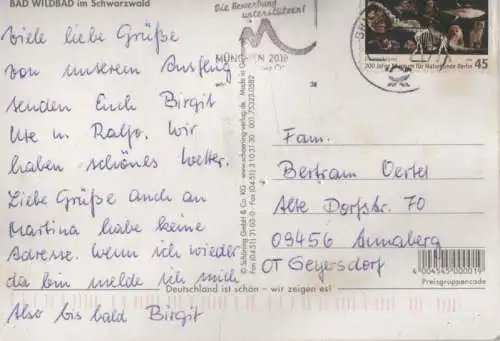 BAD WILDBAD im Schwarzwald
Viele liebe Grüße
von unserem Ausflug
senden Euch Birgit
Ute u. Ralf. Wir
haben schönes Wetter.
Liebe Grüße auch an
Martina habe keine
Adresse. Wenn ich wieder
da bin melde ich mich
Also bis bald Birgit
Die Bewerbung
unterstützen!
MÜNCHEN 2018
Deutschland
200 Jahre Museum für Naturkunde Berlin
45
© Schöning GmbH & Co. KG
www.schoening-verlag.de
Made in
Fam.
Bertram Oertel
Alte Dorfstr. 70
09456 Annaberg
OT Geyersdorf
4 004545 000019
Preisgruppencode
Deutschland ist schön – wir zeigen es!